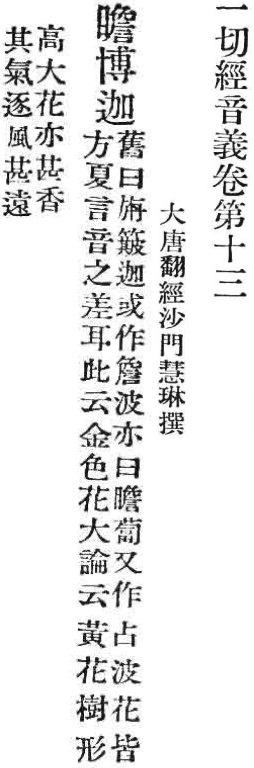 一切經音義卷第十三
大唐翻經沙門慧琳撰
瞻博迦
舊曰旃簸迦或作詹波亦曰瞻蔔又作占波花皆
方夏言音之差耳此云金色花大論云黃花樹形
高大花亦甚香
其氣逐風甚遠